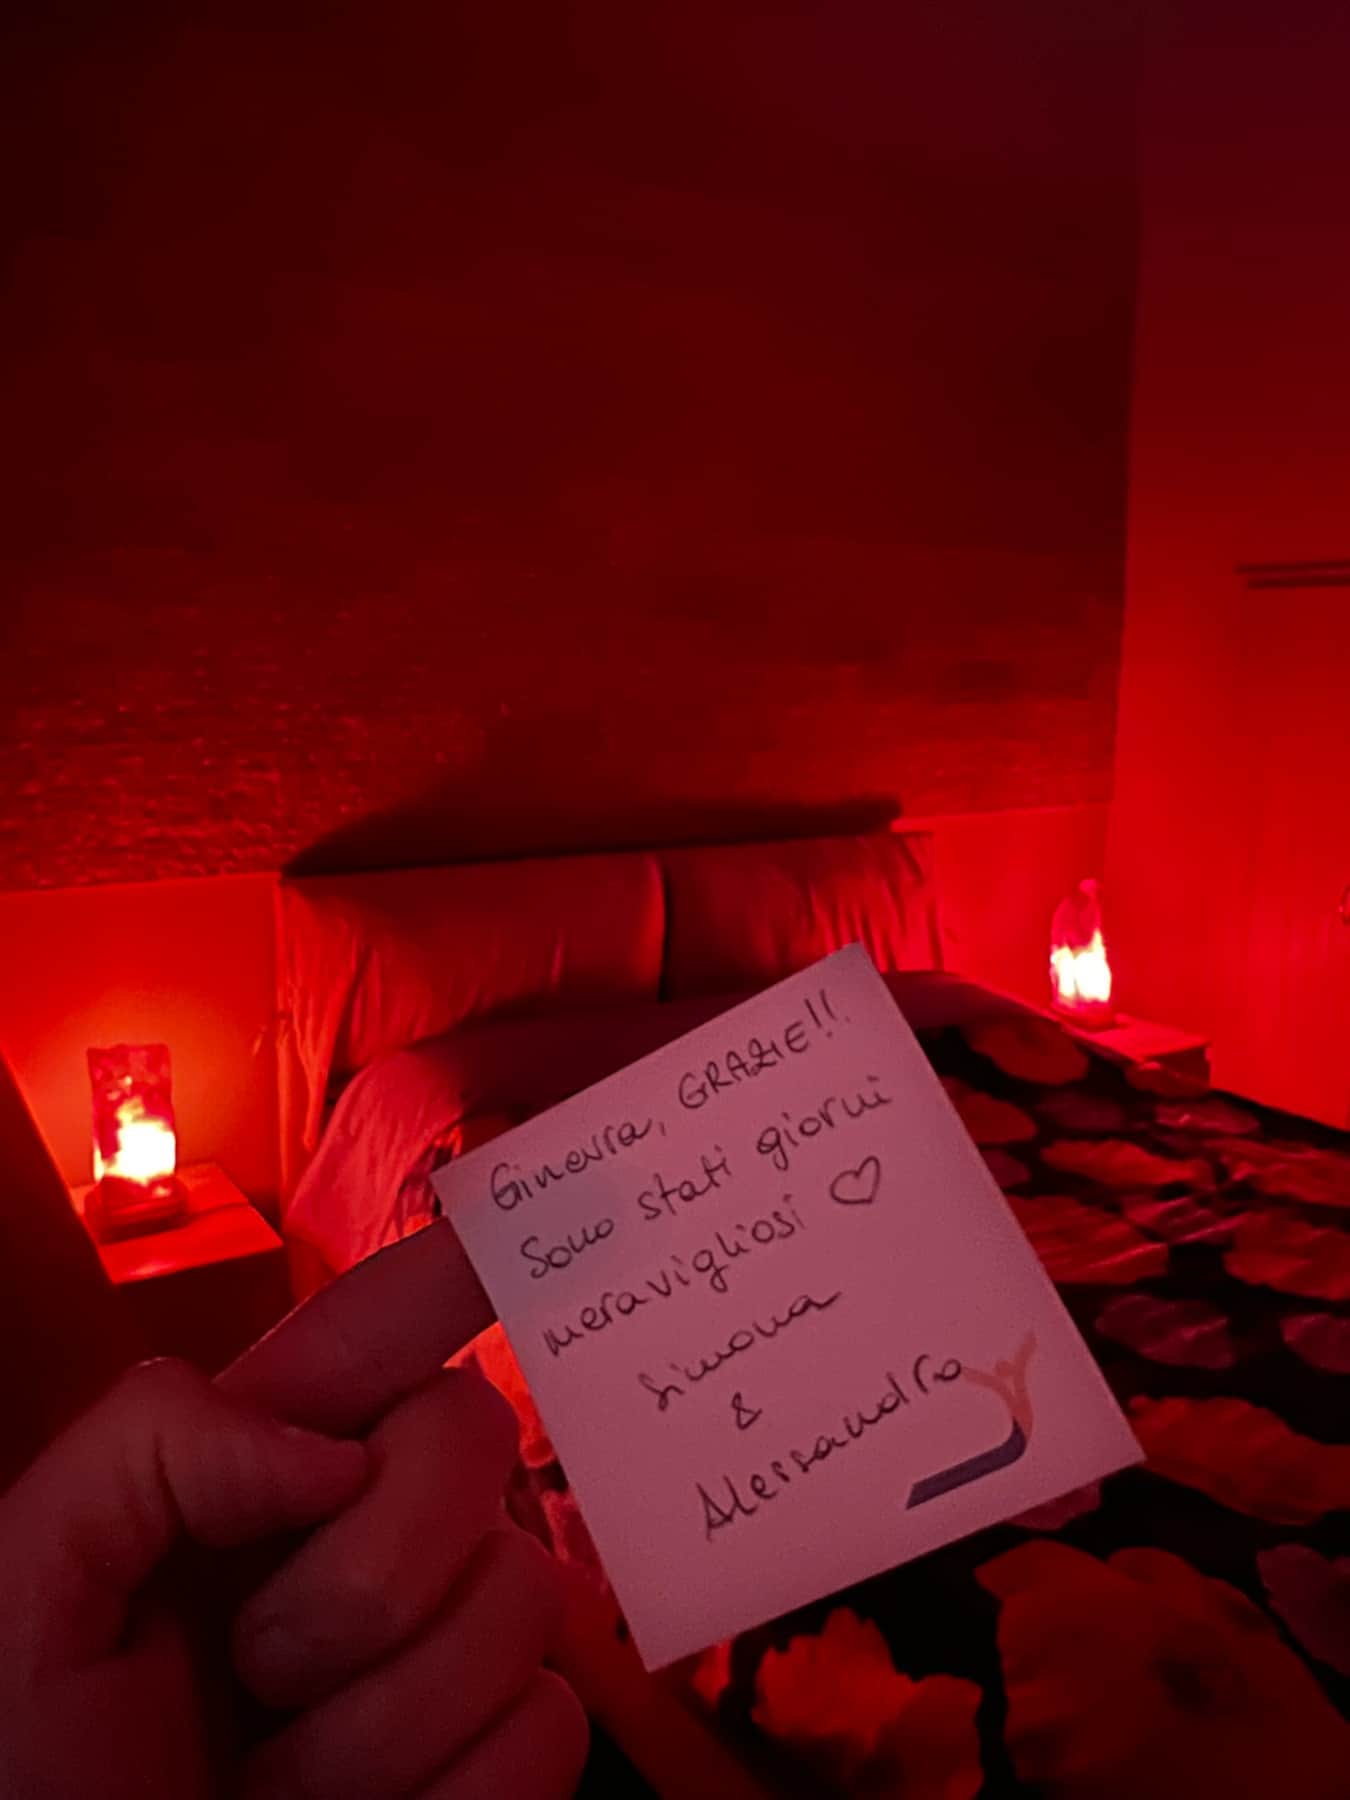 Ginevra, GRAZIE!!
Sono stati giorni
meravigliosi ♡
Simona
&
Alessandro